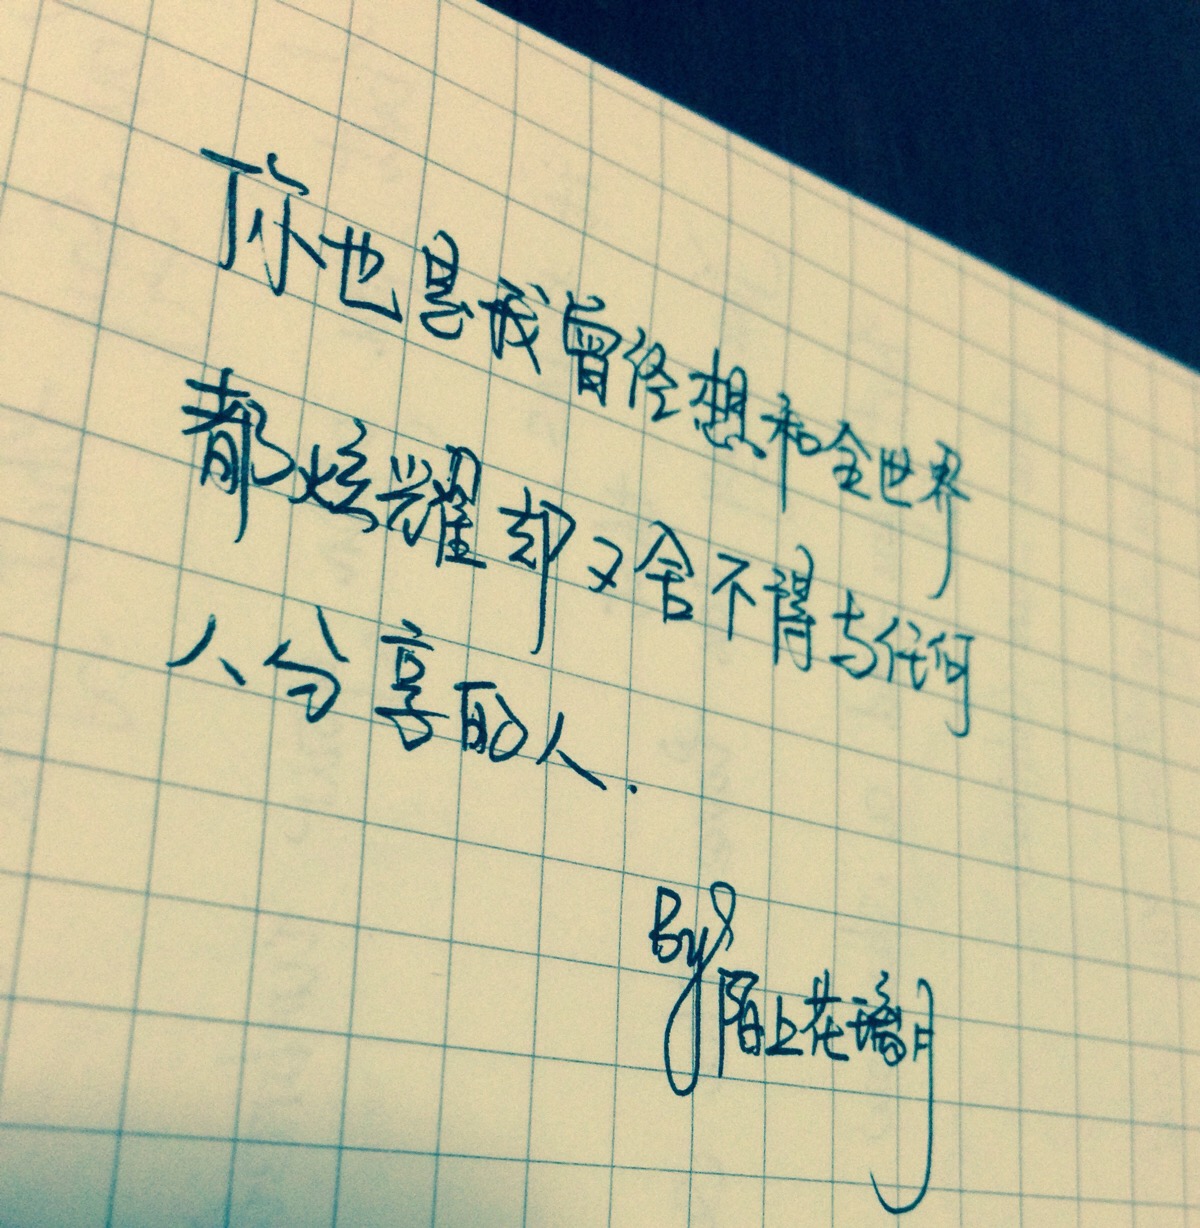 你也是我曾经想和全世界
都炫耀却又舍不得与任何
人分享的人.
By
陌上花璃月